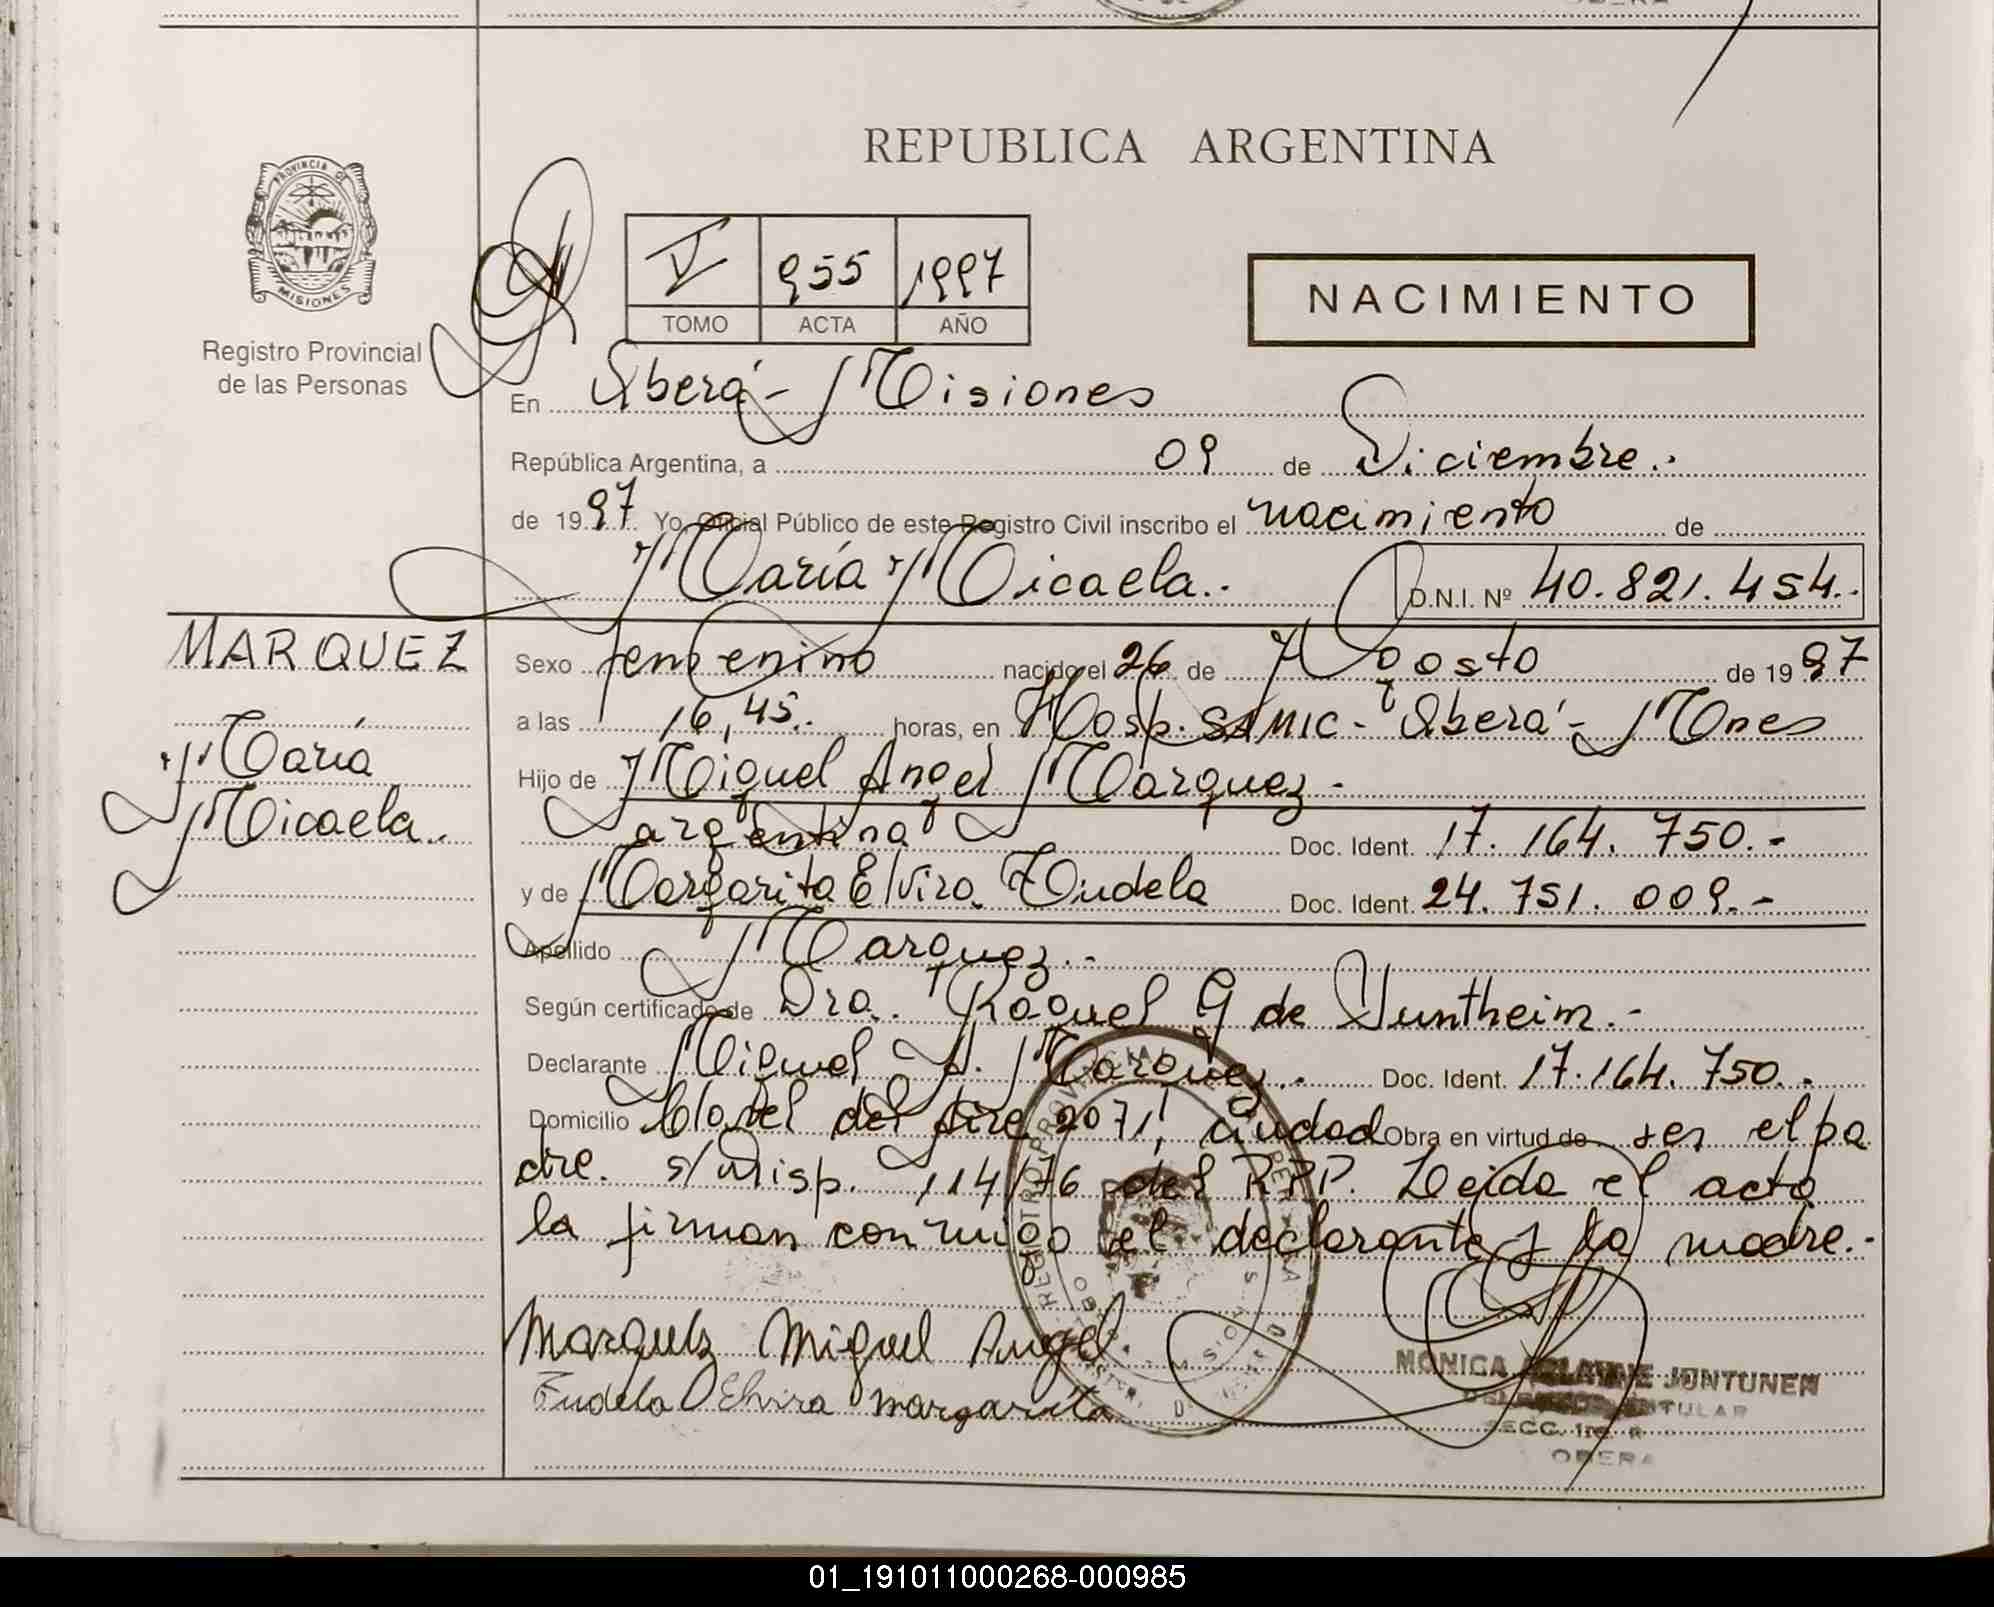 PROVINCIA DE
MISIONES
Registro Provincial
de las Personas
REPUBLICA ARGENTINA
V 955 1997
TOMO ACTA AÑO
NACIMIENTO
En Oberá - Misiones
República Argentina, a 09 de Diciembre.-
de 1997 Yo, Oficial Público de este Registro Civil inscribo el nacimiento de
María Micaela.- D.N.I. Nº 40.821.454.-
MARQUEZ
María
Micaela.-
Sexo femenino nacido el 26 de Agosto de 1997
a las 16,45.- horas, en Hosp. SAMIC - Oberá - Mnes
Hijo de Miguel Angel Marquez -
argentina Doc. Ident. 17.164.750.-
y de Margarita Elvira Tudela Doc. Ident. 24.751.009.-
Apellido Marquez.-
Según certificado de Dra. Raquel G de Juntheim.-
Declarante Miguel A. Marquez.- Doc. Ident. 17.164.750.-
Domicilio Clavel del Aire 2071, ciudad Obra en virtud de ser el pa
dre. s/Disp. 114/76 del RPP. Leída el acta
la firman conmigo el declarante y la madre.-
Marquez Miguel Angel
Tudela Elvira Margarita
REGISTRO PROVINCIAL
MONICA JUNTUNEN
TITULAR
SECC. 1ra.
OBERA
01_191011000268-000985